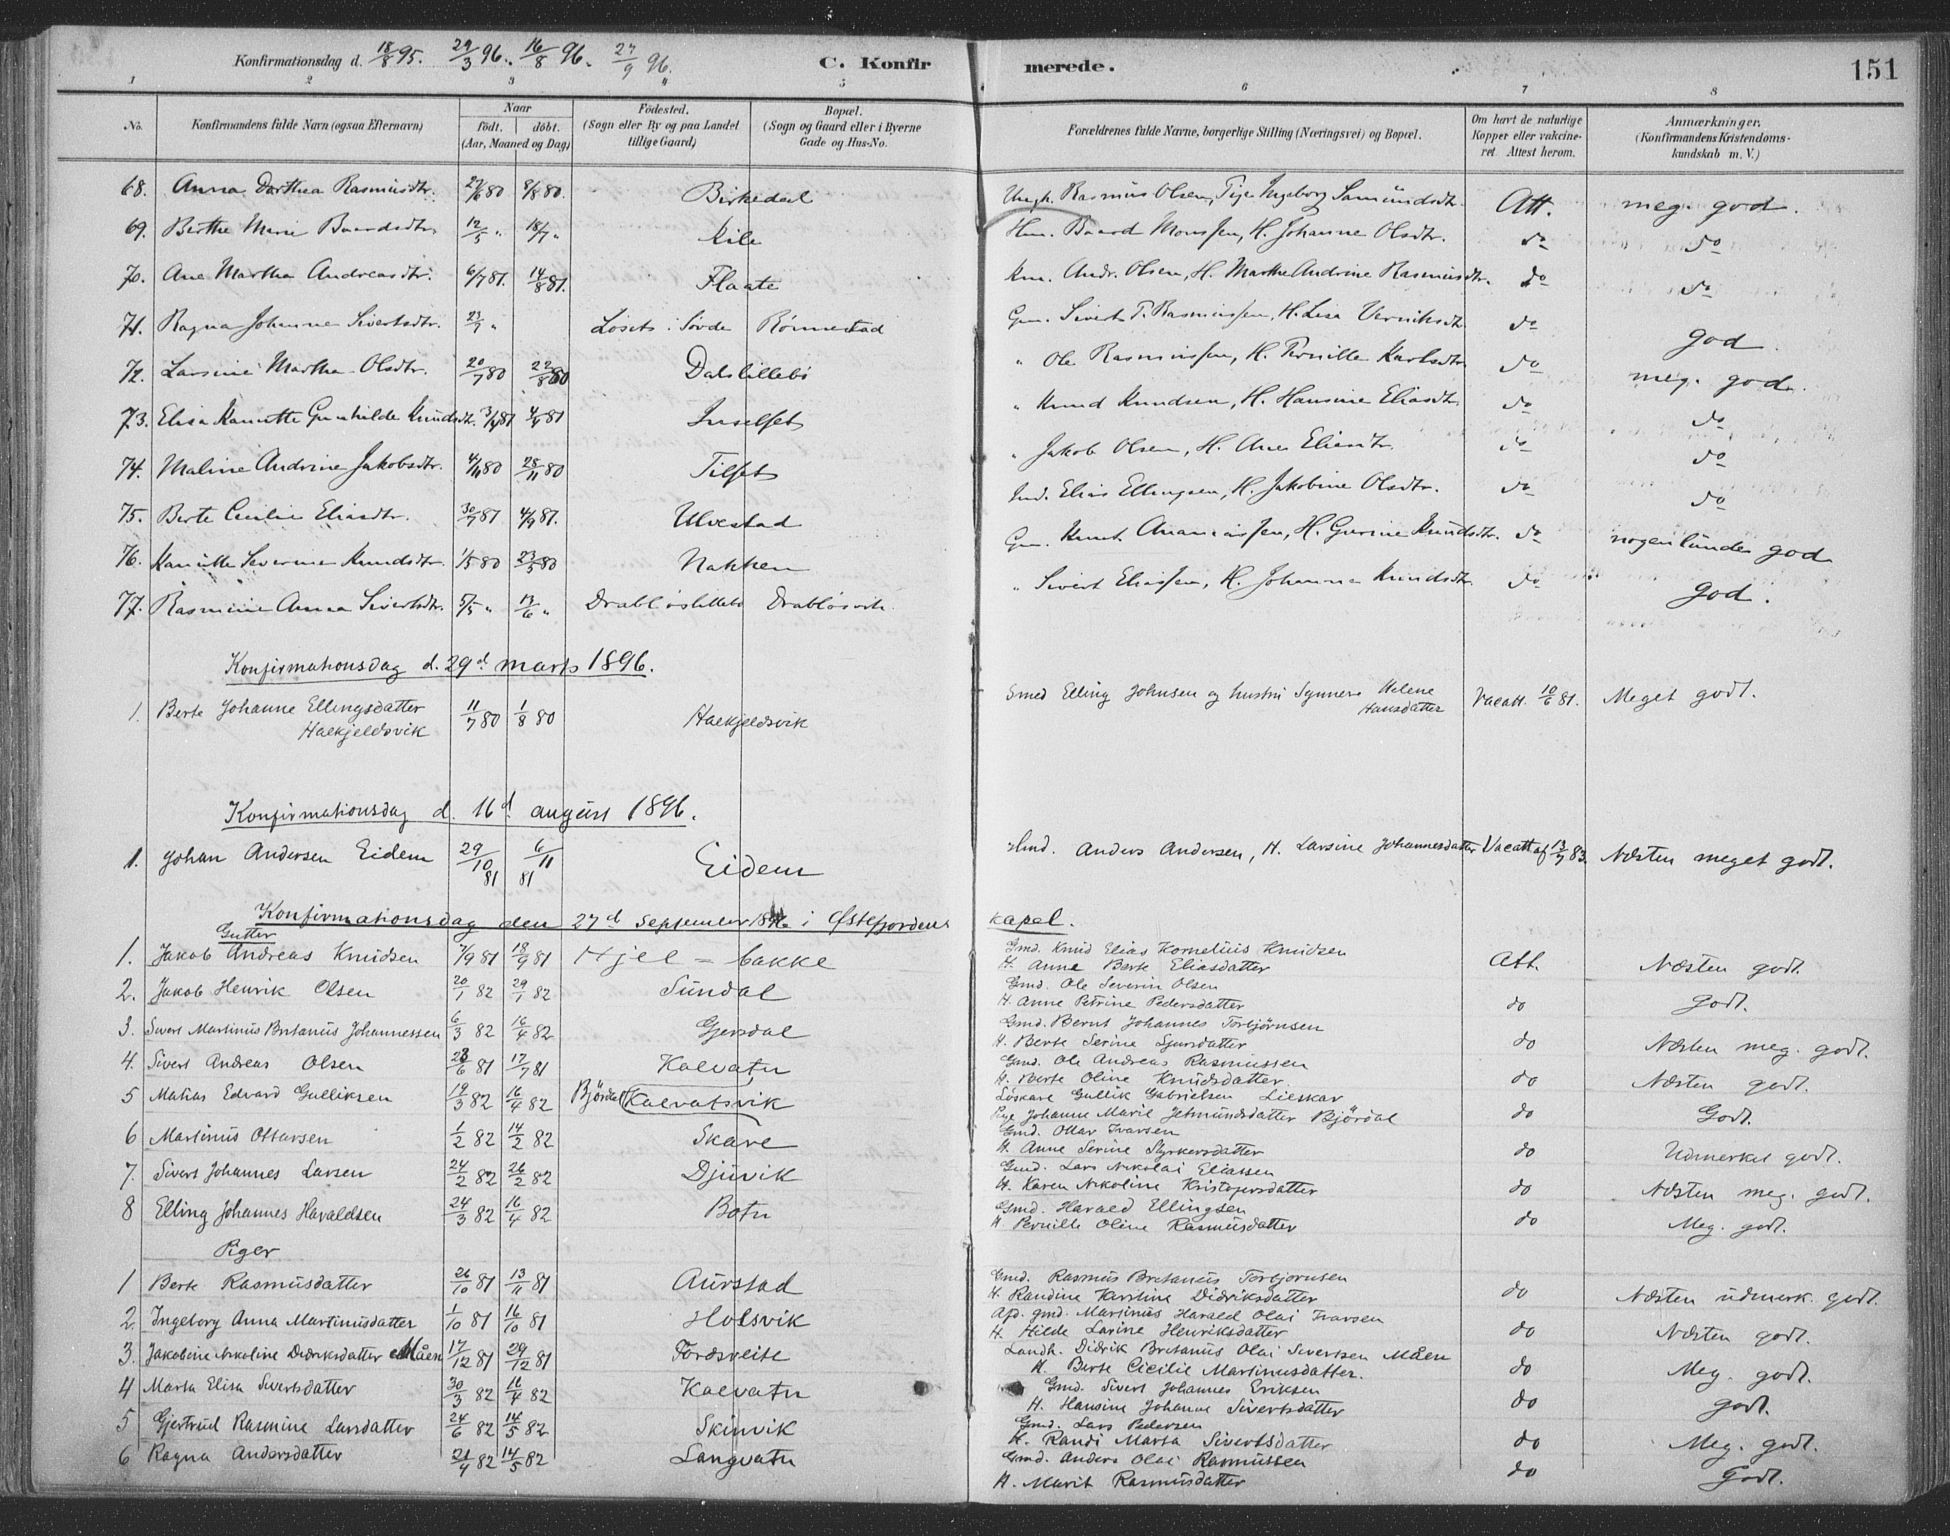 Konfirmationsdag d. 18/8 95. 29/3 96. 16/8 96. 27/9 96. C. Konfirmerede. 151
1 2 3 4 5 6 7 8
No. Konfirmandens fulde Navn (ogsaa Efternavn) Naar födt. döbt. (Aar, Maaned og Dag) Födested. (Sogn eller By og paa Landet tillige Gaard) Bopæl. (Sogn og Gaard eller i Byerne Gade og Hus-No. Forældrenes fulde Navne, borgerlige Stilling (Næringsvei) og Bopæl. Om havt de naturlige Kopper eller vakcineret. Attest herom. Anmærkninger. (Konfirmandens Kristendomskundskab m. V.)
68. Anna Dorthea Rasmusdtr. 27/6 80 8/8 80. Birkedal Ungk. Rasmus Olsen, Pige Ingeborg Samundsdtr. Att. meg. god.
69. Berthe Marie Baardsdtr 12/5 " 18/7 " Kile Hm. Baard Monssen, H. Johanne Olsdtr. do do
70. Ane Martha Andreasdtr. 6/7 81. 14/8 81. Flaate Km. Andr. Olsen, H. Marthe Andrine Rasmusdtr. do do
71. Ragna Johanne Sivertsdtr. 23/7 " Löset i Sövde Rönnestad Gm. Sivert P. Rasmussen, H. Lisa do god
72. Larsine Martha Olsdtr. 20/7 80 22/8 80 Dalslillebö " Ole Rasmussen, H. Pernille Karlsdtr. do meg. god.
73. Elisa Kanutte Gunhilde Knudsdtr. 81 81 Inselset " Knud Knudsen, H. Hansine Eliasdtr do do
74. Maline Andrine Jakobsdtr. 4/11 80 28/11 80 Tilset " Jakob Olsen, H. Ane Eliasdtr. do do
75. Berte Cecilie Eliasdtr. 30/7 81 4/9 81. Ulvestad Ind. Elias Ellingsen, H. Jakobine Olsdtr. do do
76. Kanutte Severine Knudsdtr. 1/5 80 23/5 80 Nakken Gm. Knut Ananiassen, H. Gurine Knudsdtr. do nogenlunde god
77. Rasmine Anna Sivertsdtr. 5/5 " 13/6 " Drablöslillebö Drablösvik. " Sivert Eliassen, H. Johanna Knudsdtr. do god.
Konfirmationsdag d. 29d marts 1896.
1. Berte Johanne Ellingsdatter Haekjeldsvik 11/7 80 1/8 80 Haekjeldsvik Smed Elling Johnsen og hustru Synnere Helene Hansdatter Vacatt. 10/6 81. Meget godt.
Konfirmationsdag d. 16d august 1896.
1. Johan Andersen Eidem 29/10 81 6/11 81 Eidem Anders Andersen, H. Larsine Johannesdatter Vacatt af 13/7 83. Næsten meget godt.
Konfirmationsdag den 27d september 1896 i Østefjordens kapel.
Gutter
1. Jakob Andreas Knudsen 7/9 81 18/9 81 Hjel = bakke Gmd. Knud Elias Kornelius Knudsen H. Anne Berte Eliasdatter Att. Næsten godt.
2. Jakob Henrik Olsen 20/1 82 29/1 82 Sundal Gmd. Ole Severin Olsen H. Anne Petrine Pedersdatter do godt.
3. Sivert Martinus Bretanus Johannessen 6/3 82 16/4 82 Gjersdal Gmd. Bernt Johannes Torbjørnsen H. Berte Serine Sjursdatter do Næsten meg. godt.
4. Sivert Andreas Olsen 23/6 81 17/7 81 Kalvatn Gmd. Ole Andreas Rasmussen H. Berte Oline Knudsdatter. do Næsten godt.
5 Matias Edvard Gulliksen 19/3 82 16/4 82 Bjørdal Kalvatsvik Løskare Gullik Gabrielsen Lieskar Pige Johanne Marie Jetmundsdatter Bjørdal do Godt.
6 Martinus Ottarsen 1/2 82 14/2 82 Skåre Gmd. Ottar Ivarsen H. Anne Serine Styrkersdatter do Udmerket godt.
7. Sivert Johannes Larsen 24/2 82 26/2 82 Djuvik Gmd. Lars Nikolai Eliassen H. Karen Nikoline Kristofersdatter do Næsten meg. godt.
8 Elling Johannes Haraldsen 24/3 82 16/4 82 Botn Gmd. Harald Ellingsen H Pernille Oline Rasmusdatter do Meg. godt.
Piger
1 Berte Rasmusdatter 26/10 81 13/11 81 Aurstad Gmd. Rasmus Bretanus Torbjørnsen H. Randine Karstine Didriksdatter do Næsten udmerk. godt.
2. Ingeborg Anna Martinusdatter 1/10 81 16/10 81 Holsvik Afd. gmd. Martinus Harald Olai Ivarsen H. Hilde Larine Henriksdatter do Næsten godt.
3. Jakobine Nikoline Didriksdatter Måen 17/12 81 29/12 81 Fordsveite Landh. Didrik Bretanus Olai Sivertsen Måen H. Berte Cicilie Martinusdatter. do Meg. godt.
4 Marta Elisa Sivertsdatter 30/3 82 16/4 82 Kalvatn Gmd. Sivert Johannes Eriksen H. Hansine Johanne Sivertsdatter do godt.
5 Gjertrud Rasmine Larsdatter 24/6 82 14/5 82 Skinvik Gmd. Lars Pedersen H. Randi Marta Sivertsdatter do Meg. godt.
6 Ragna Andersdatter 21/4 82 14/5 82 Langvatn Gmd. Anders Olai Rasmussen H. Marit Rasmusdatter do Godt.